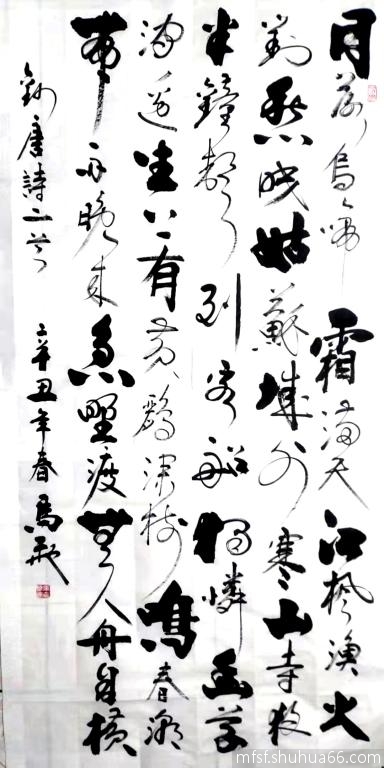 月落烏啼霜滿天江楓漁火
對愁眠姑蘇城外寒山寺夜
半鐘聲到客船獨憐幽草
澗邊生上有黃鸝深樹鳴春潮
帶雨晚來急野渡無人舟自橫
錄唐詩二首 辛丑年春馬
mfsf.shuhua66.com